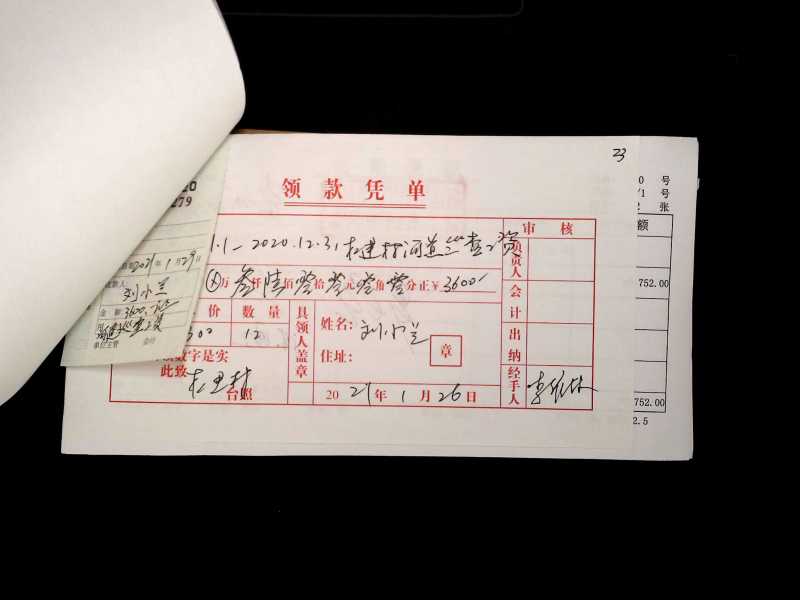 23
领款凭单
1.1—2020.12.31 村建村河道巡查工资
万叁仟陆佰零拾零元零角零分正¥3600/
审核
负责人
会计
出纳
经手人 李
价 数量
300 12
具领人盖章
姓名：刘小兰
住址：
章
数字是实
此致
台照
2021年1月26日
20
279
2021年1月29日
刘小兰
金额 3600.
单位主管 会计
号
号
张
额
752.00
752.00
2.5